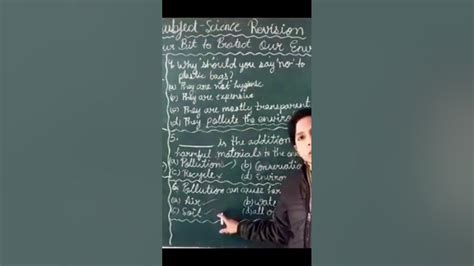 Subject-Science Revision
Our Bit to Protect Our Envi
4. Why should you say 'no' to
plastic bags?
(a) They are not hygienic
(b) They are expensive
(c) They are mostly transparent
(d) They pollute the enviro
5. ______ is the addition
harmful materials to the en
(a) Pollution (b) Conservation
(c) Recycle (d) Enviro
6. Pollution can cause har
(a) Air (b) Wate
(c) Soil (d) all o